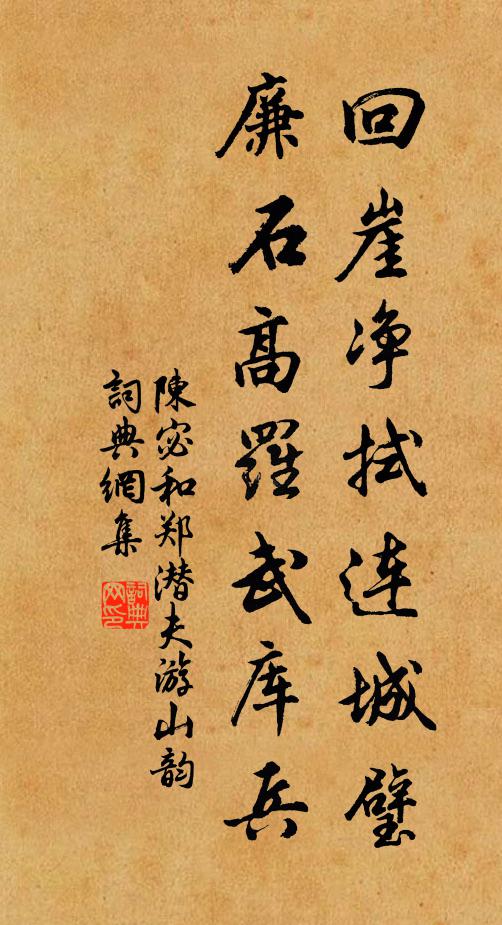 回崖净拭连城璧
廉石高羅武库兵
陳宓和郑潜夫游山韵
詞典網集
詞典网印